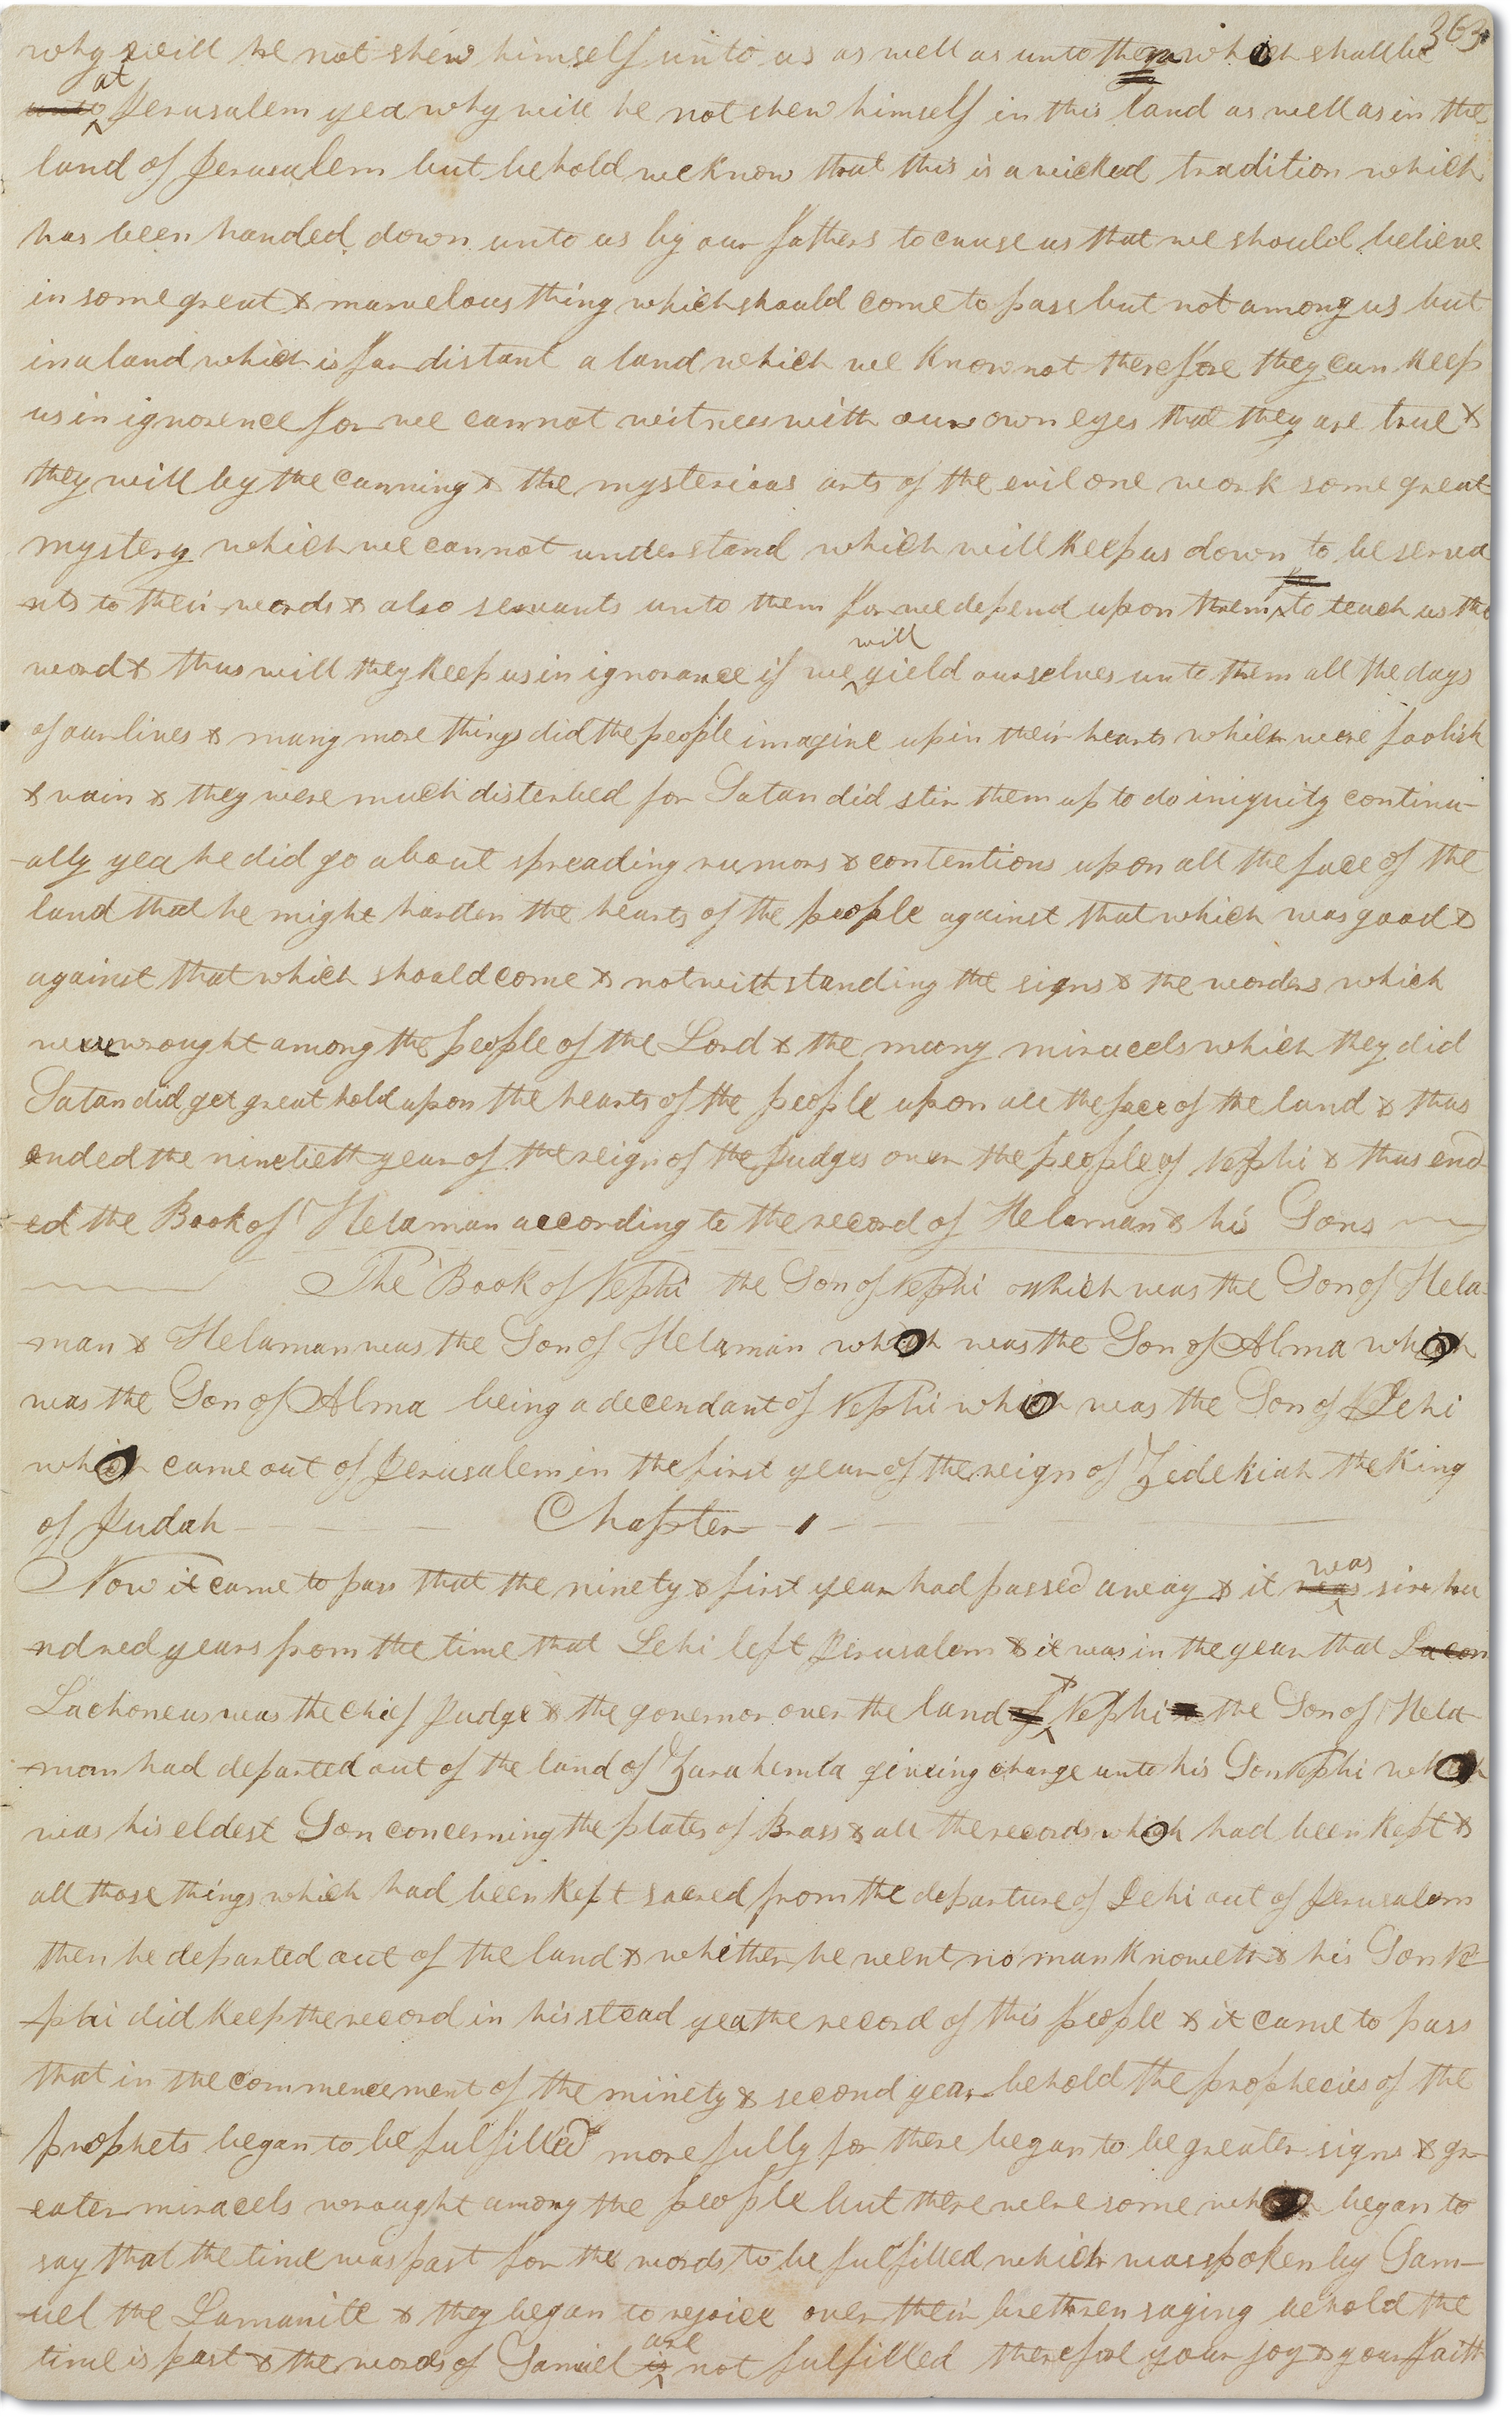 363
why will he not shew himself unto us as well as unto them which shall be
unto at Jerusalem yea why will he not shew himself in this land as well as in the
land of Jerusalem but behold we know that this is a wicked tradition which
has been handed down unto us by our fathers to cause us that we should believe
in some great & marvelous thing which should come to pass but not among us but
in a land which is far distant a land which we know not therefore they can keep
us in ignorence for we cannot witness with our own eyes that they are true &
they will by the cunning & the mysterious arts of the evil one work some great
mystery which we cannot understand which will keep us down to be serva
-nts to their words & also servants unto them for we depend upon them to teach us the
word & thus will they keep us in ignorance if we will yield ourselves unto them all the days
of our lives & many more things did the people imagine up in their hearts which were foolish
& vain & they were much disterbed for Satan did stir them up to do iniquity continu-
-ally yea he did go about spreading rumors & contentions upon all the face of the
land that he might harden the hearts of the people against that which was good &
against that which should come & notwithstanding the signs & the wonders which
were wrought among the people of the Lord & the many miracels which they did
Satan did get great hold upon the hearts of the people upon all the face of the land & thus
ended the ninetieth year of the reign of the Judges over the people of Nephi & thus end
-ed the Book of Helaman according to the record of Helaman & his Sons
The Book of Nephi the Son of Nephi which was the Son of Hela-
-man & Helaman was the Son of Helaman which was the Son of Alma which
was the Son of Alma being a decendant of Nephi which was the Son of Lehi
which came out of Jerusalem in the first year of the reign of Zedekiah the King
of Judah Chapter 1
Now it came to pass that the ninety & first year had passed away & it was was six hu
-ndred years from the time that Lehi left Jerusalem & it was in the year that Lacon
Lachoneus was the chief Judge & the governor over the land of & Nephi the Son of Hela-
-man had departed out of the land of Zarahemla giveing charge unto his Son Nephi which
was his eldest Son concerning the plates of Brass & all the records which had been kept &
all those things which had been kept sacred from the departure of Lehi out of Jerusalem
then he departed out of the land & whither he went no man knoweth & his Son Ne
-phi did keep the record in his stead yea the record of this people & it came to pass
that in the commencement of the ninety & second year behold the prophecies of the
prophets began to be fulfilled more fully for there began to be greater signs & gr-
-eater miracels wrought among the people but there were some which began to
say that the time was past for the words to be fulfilled which was spoken by Sam-
-uel the Lamanite & they began to rejoice over their brethren saying behold the
time is past & the words of Samuel is are not fulfilled therefore your joy & your faith